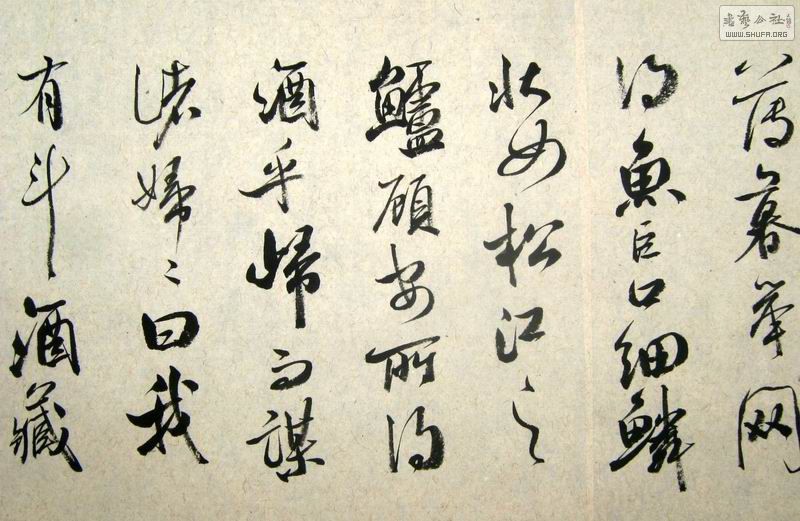 薄暮举网
得魚巨口细鳞
状如松江之
鱸顾安所得
酒乎歸而謀
诸婦〻曰我
有斗酒藏
书艺公社
WWW.SHUFA.ORG